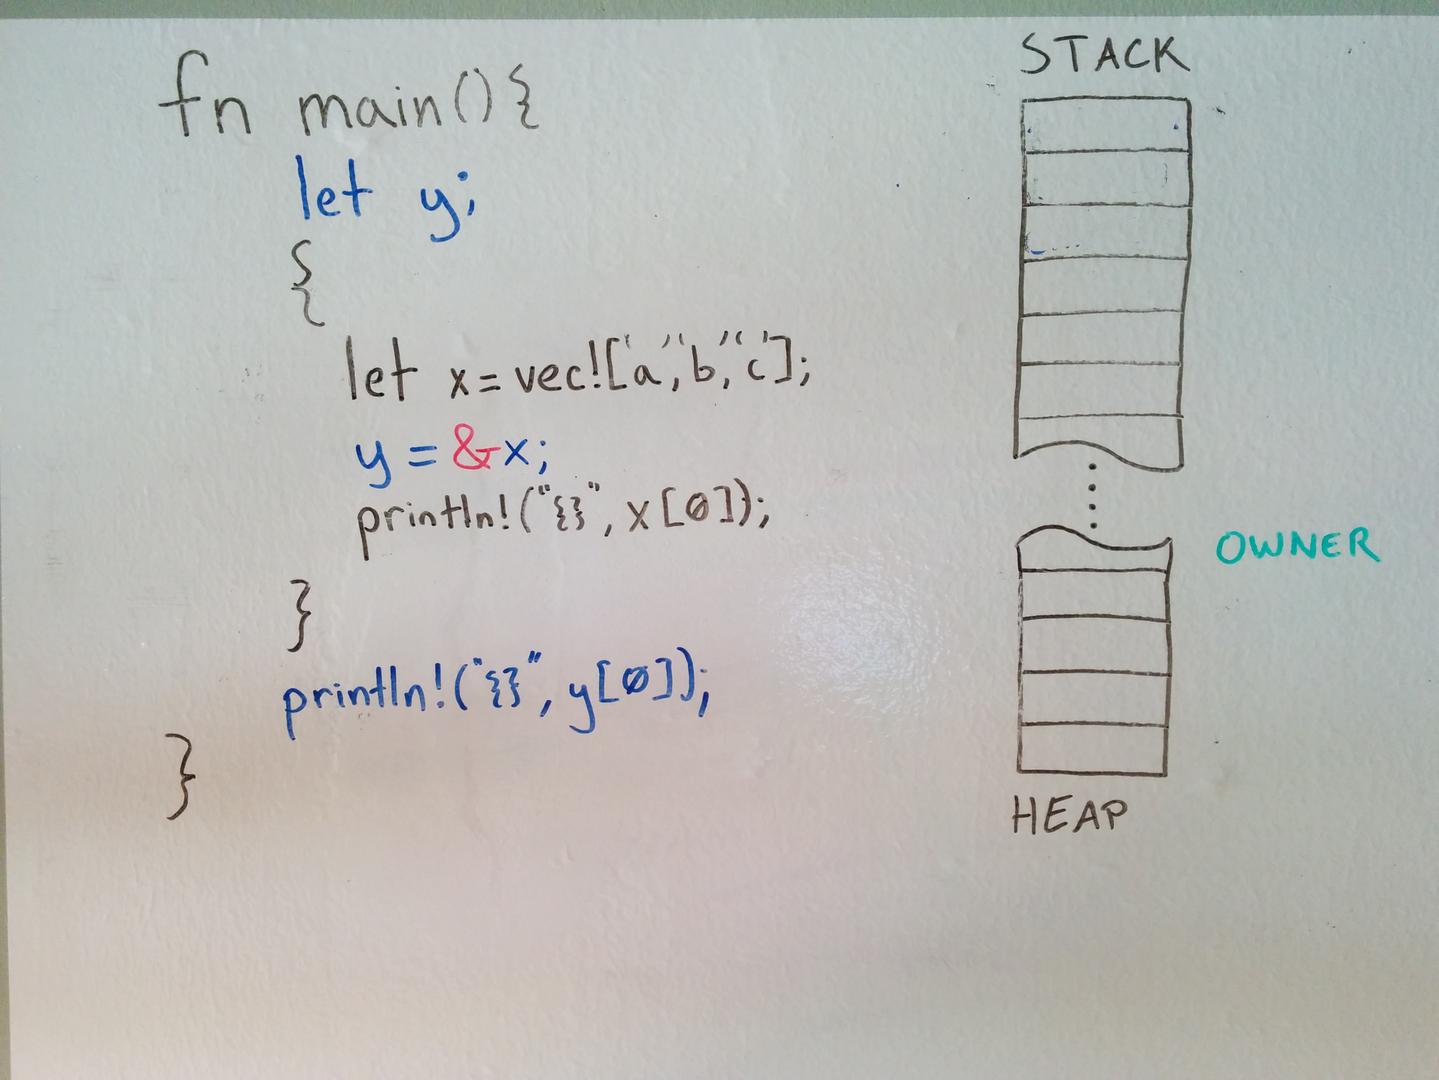 fn main(){
let y;
{
let x=vec!['a','b','c'];
y = &x;
println!("{}", x[0]);
}
println!("{}", y[0]);
}
STACK
OWNER
HEAP